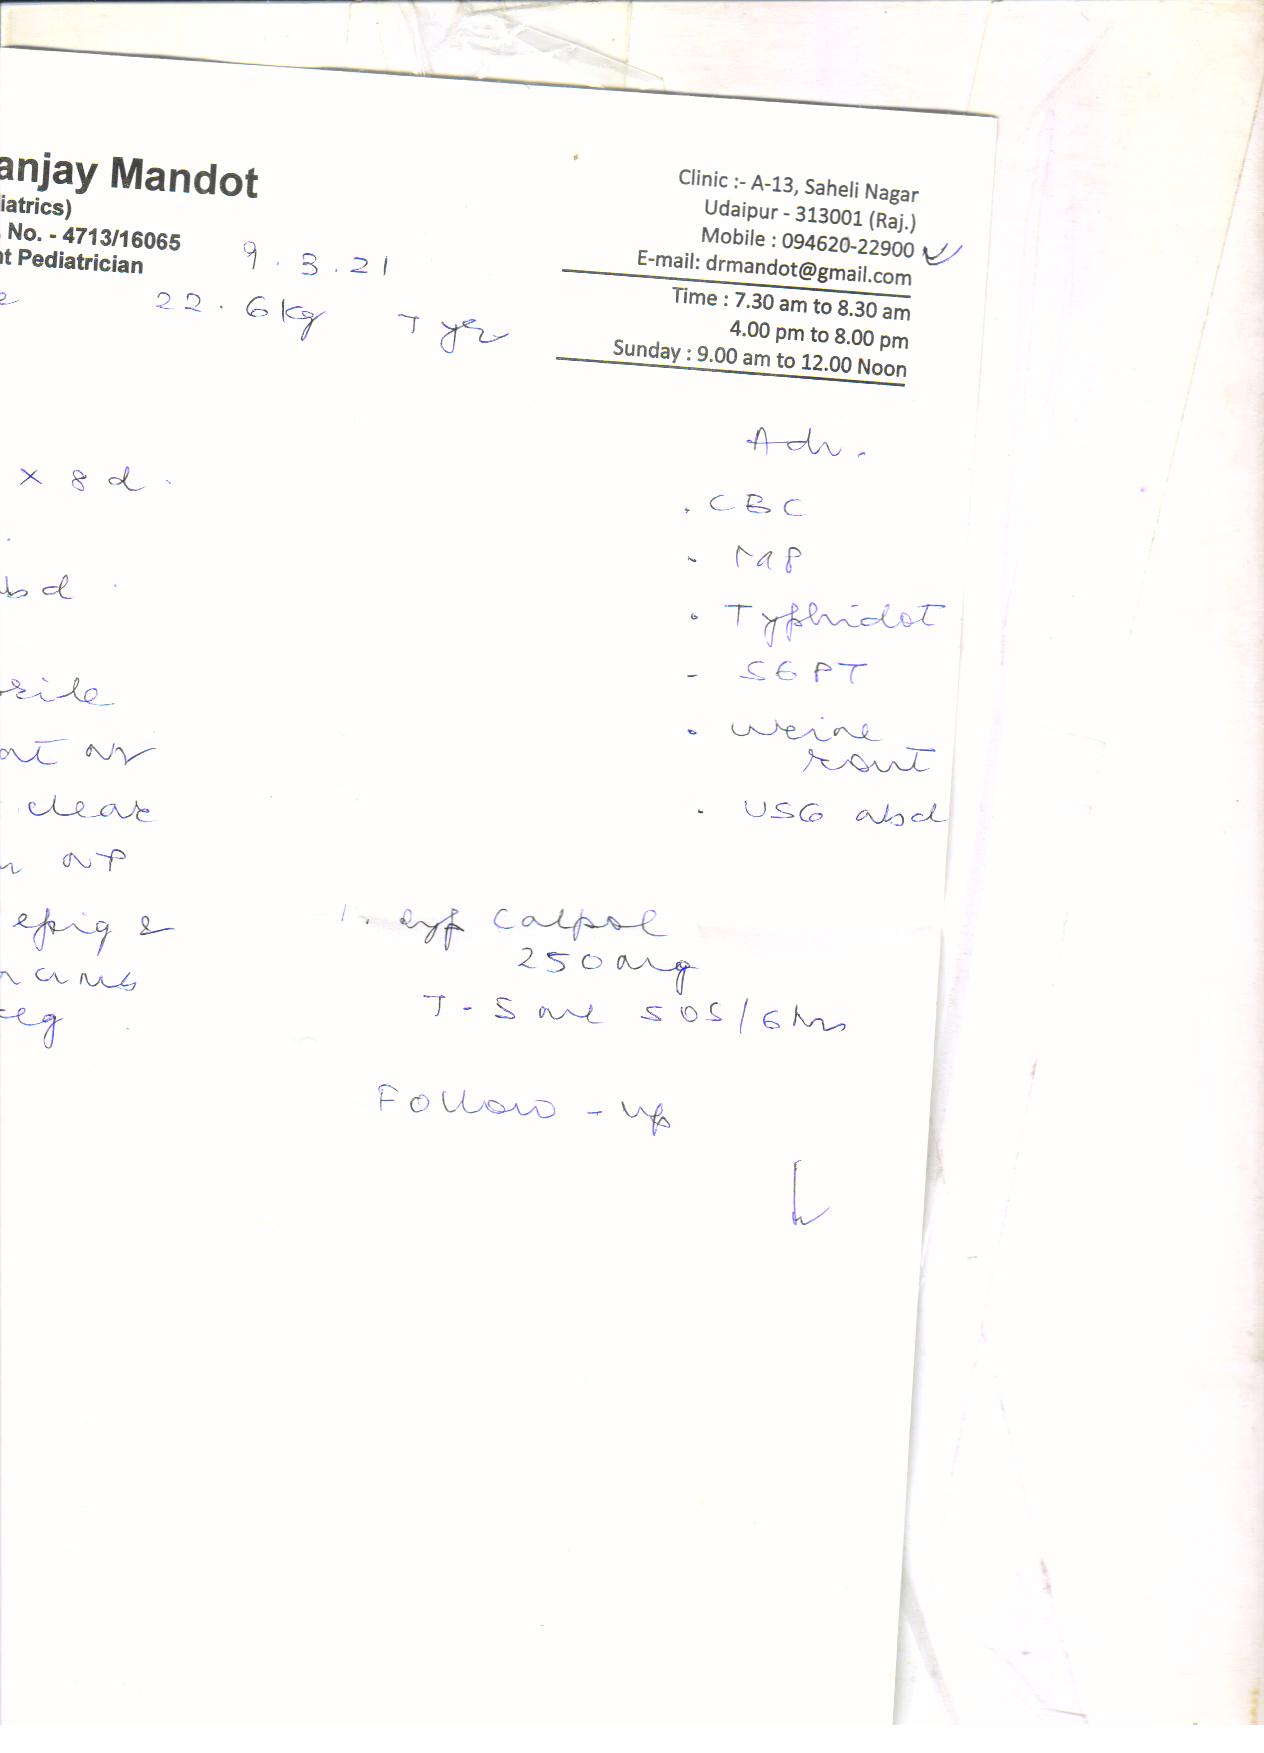 anjay Mandot
iatrics)
No. - 4713/16065
nt Pediatrician
Clinic :- A-13, Saheli Nagar
Udaipur - 313001 (Raj.)
Mobile : 094620-22900
E-mail: drmandot@gmail.com
Time : 7.30 am to 8.30 am
4.00 pm to 8.00 pm
Sunday : 9.00 am to 12.00 Noon
9.3.21
22.6 kg 7 yr
x 8 d.
bd
rile
nt
clear
epig &
eg
Adv.
. CBC
- MP
. Typhidot
- SGPT
. Urine
rout
. USG abd
1. Syp Calpol
250 mg
7.5 ml SOS/6 hrs
Follow-up